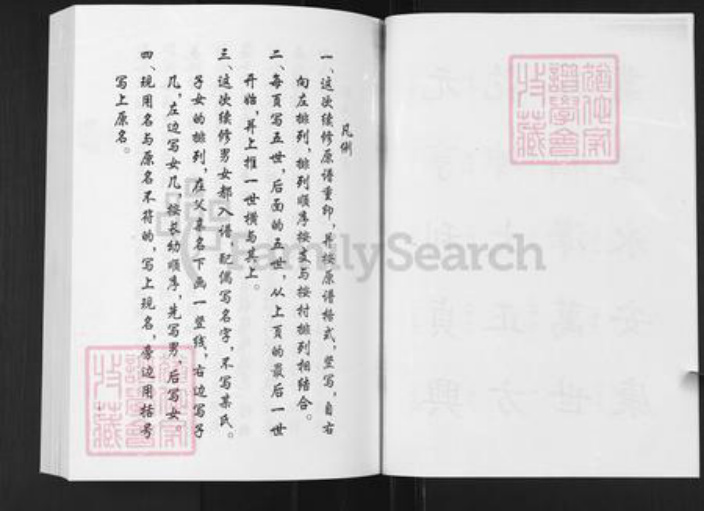 凡例
一、这次续修原谱重印，并按原谱格式，竖写，自右
向左排列，排列顺序按支与按村排列相结合。
二、每页写五世，后面的五世，从上页的最后一世
开始，并上推一世横与其上。
三、这次续修男女都入谱，配偶写名字，不写某氏。
子女的排列，在父亲名下画一竖线，右边写子
几，左边写女几，按长幼顺序，先写男，后写女。
四、现用名与原名不符的，写上现名，旁边用括号
写上原名。
FamilySearch
譜學會
收藏